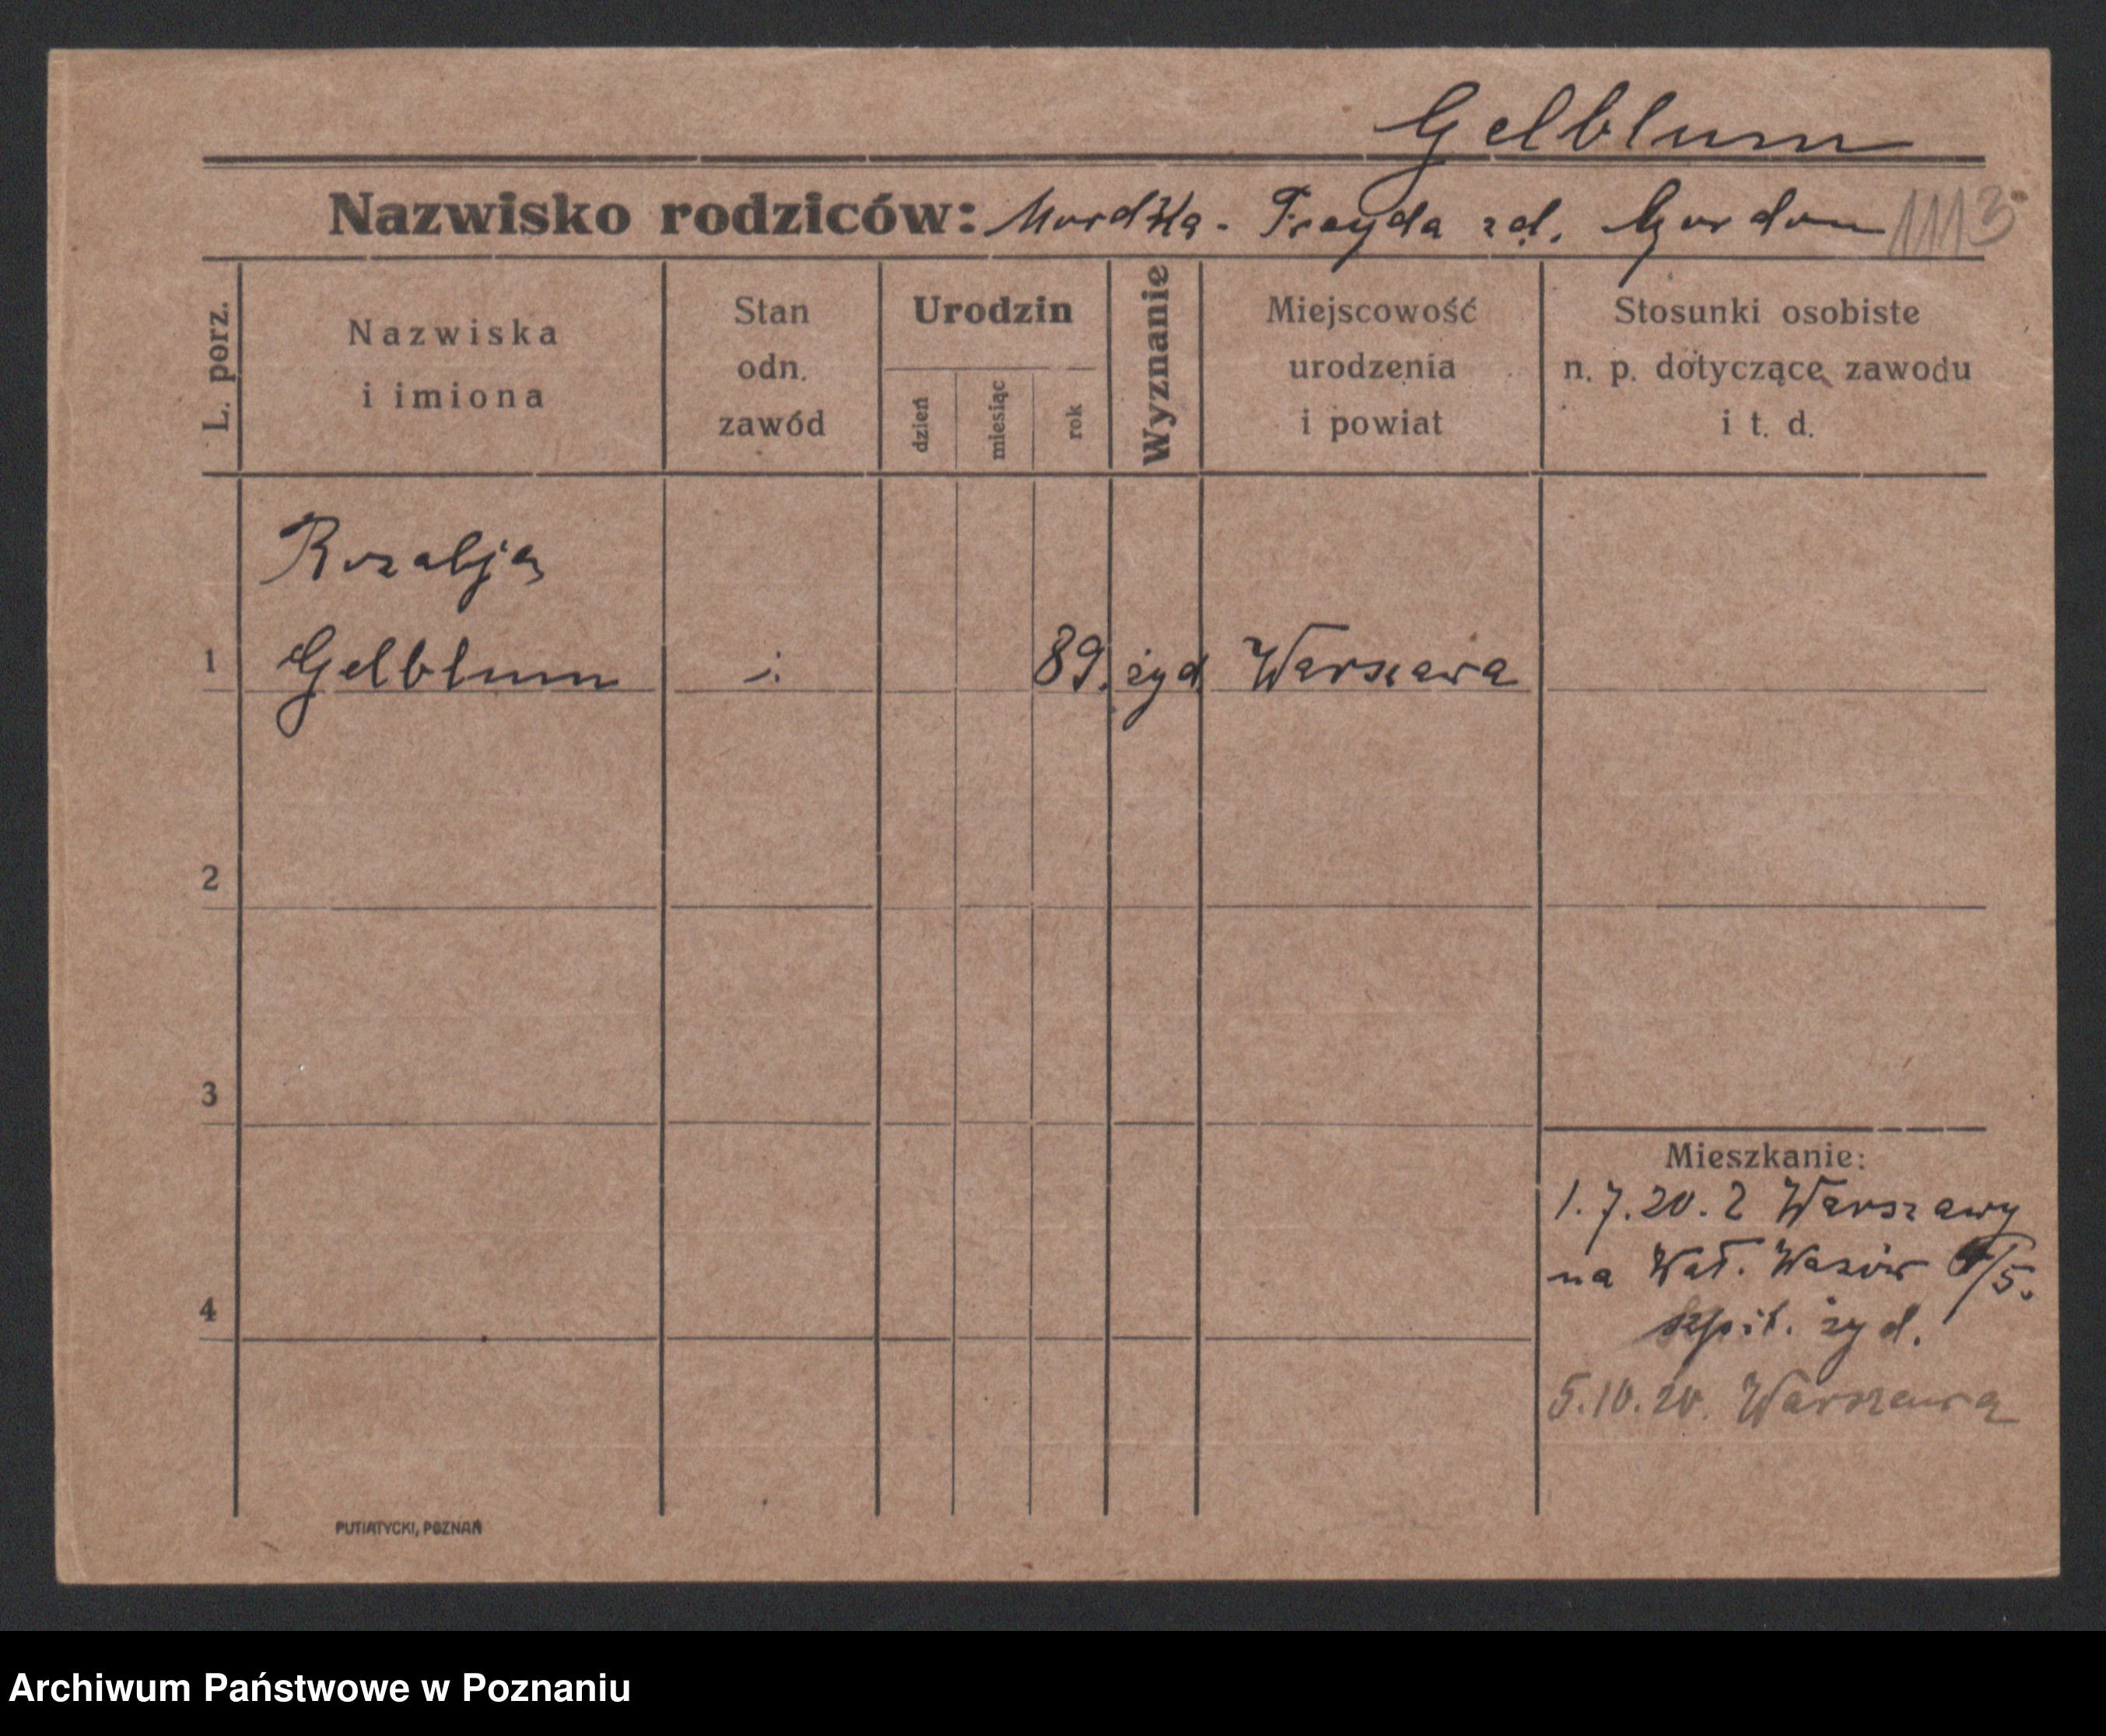 Gelblum
Nazwisko rodziców: Mordka - Frayda zd. Gordon 1113
L. porz.
Nazwiska
i imiona
Stan
odn.
zawód
Urodzin
dzień
miesiąc
rok
Wyznanie
Miejscowość
urodzenia
i powiat
Stosunki osobiste
n. p. dotyczące zawodu
i t. d.
Rozalja
1 Gelblum 89. żyd Warszawa
2
3
Mieszkanie:
1.7.20. z Warszawy
na Wał. Wazów /5.
4
szpit. żyd.
5.10.20. Warszawa
PUTIATYCKI, POZNAŃ
Archiwum Państwowe w Poznaniu